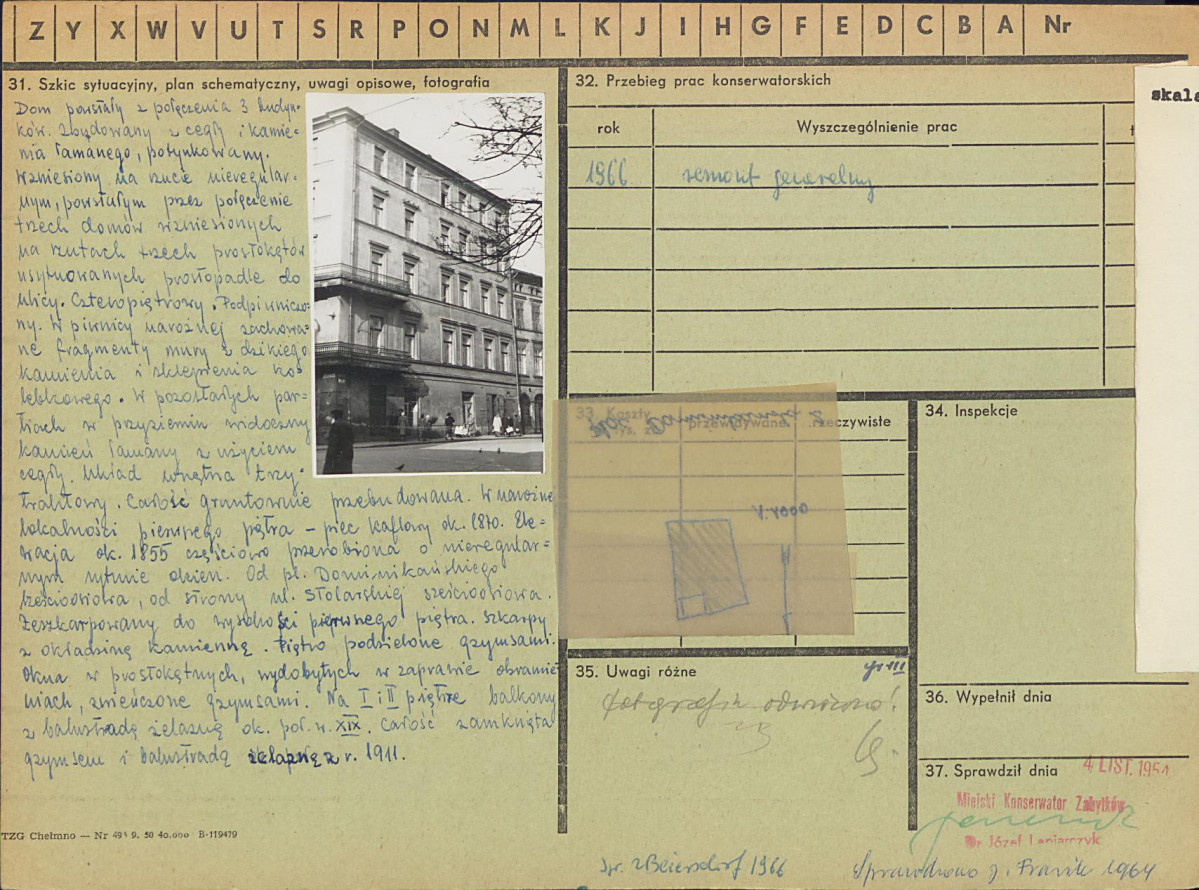 Z Y X W V U T S R P O N M L K J I H G F E D C B A Nr
31. Szkic sytuacyjny, plan schematyczny, uwagi opisowe, fotografia
Dom powstały z połączenia 3 budyn-
ków. Zbudowany z cegły i kamie-
nia łamanego, potynkowany.
Wzniesiony na rzucie nieregular-
nym, powstałym przez połączenie
trzech domów wzniesionych
na rzutach trzech prostokątów
usytuowanych prostopadle do
ulicy. Czteropiętrowy. Podpiwniczo-
ny. W piwnicy narożnej zachowa-
ne fragmenty muru z dzikiego
kamienia i sklepienia ko-
lebkowego. W pozostałych par-
tiach w przyziemiu widoczny
kamień łamany z użyciem
cegły. Układ wnętrza trzy-
traktowy. Całość gruntownie przebudowana. W narożnej
lokalności pierwszego piętra – piec kaflowy ok. 1870. Ele-
wacja ok. 1855 częściowo przerobiona o nieregular-
nym rytmie okien. Od pl. Dominikańskiego
sześcioosiowa, od strony ul. Stolarskiej sześcioosiowa.
Zeszkarpowany do wysokości pierwszego piętra. Szkarpy
z okładziną kamienną. Piętra podzielone gzymsami.
Okna w prostokątnych, wydobytych w zaprawie obramie-
niach, zwieńczone gzymsami. Na I i II piętrze balkony
z balustradą żelazną ok. poł. w. XIX. Całość zamknięta
gzymsem i balustradą żelazną z r. 1911.
TZG Chełmno — Nr 495 9. 50 40.000 B-119479
32. Przebieg prac konserwatorskich
rok Wyszczególnienie prac
1966 remont generalny
skala
33. Koszty
przewidywane rzeczywiste
pl. Dominikański 2
1:1000
34. Inspekcje
35. Uwagi różne
fotografia odwrócona!
36. Wypełnił dnia
37. Sprawdził dnia
4 LIST. 1954
Miejski Konserwator Zabytków
Dr Józef Lepiarczyk
Spr. z Beiersdorf 1966
Sprawdzono j. Frazik 1964